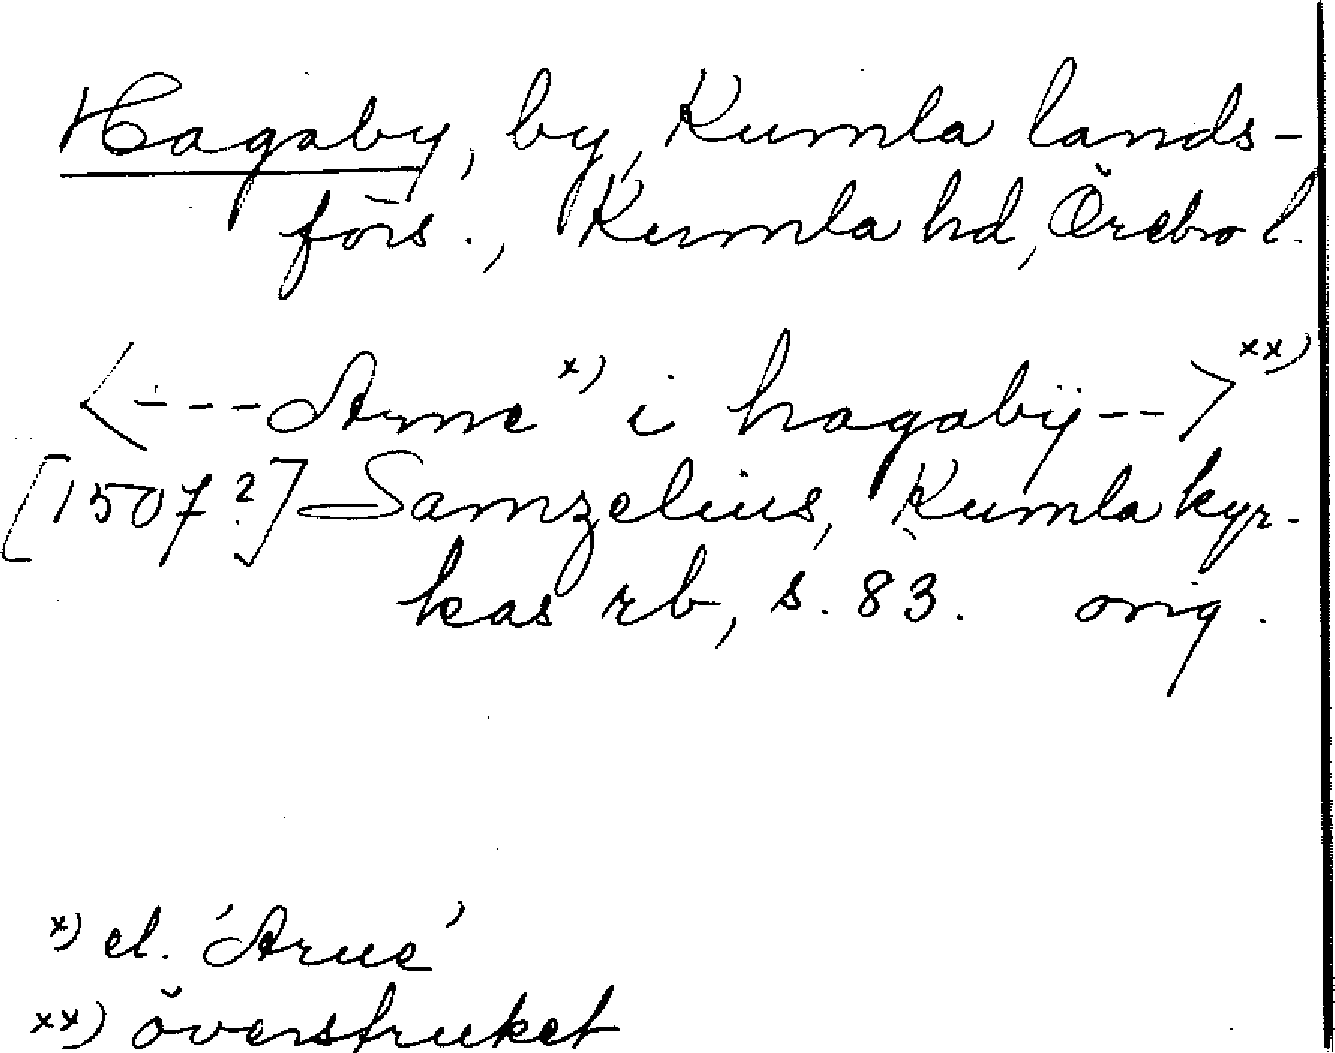 Hagaby, by, Kumla lands-
förs., Kumla hd, Örebro l.
<--- Arne x) i hagabÿ -- > xx)
[1507?] Samzelius, Kumla kyr-
kas rb, s. 83. orig.
x) el. 'Arue'
xx) överstruket